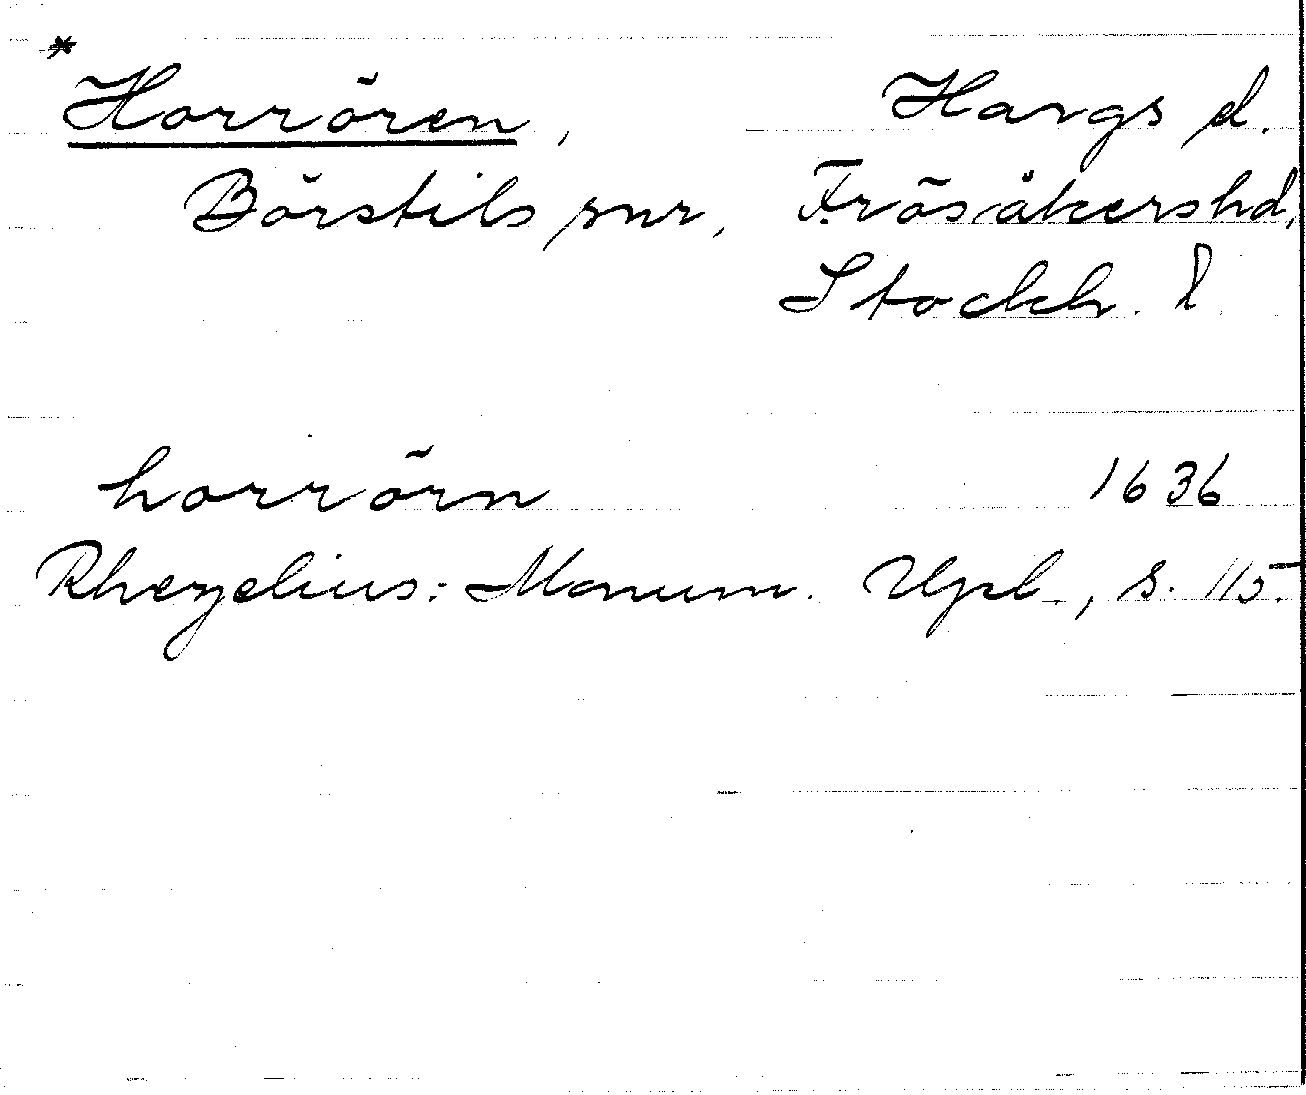 *
Horrören, Hargs d.
Börstils snr, Frösåkershd,
Stockh. l
horrörn 1636
Rhezelius: Monum. Upl., s. 115.